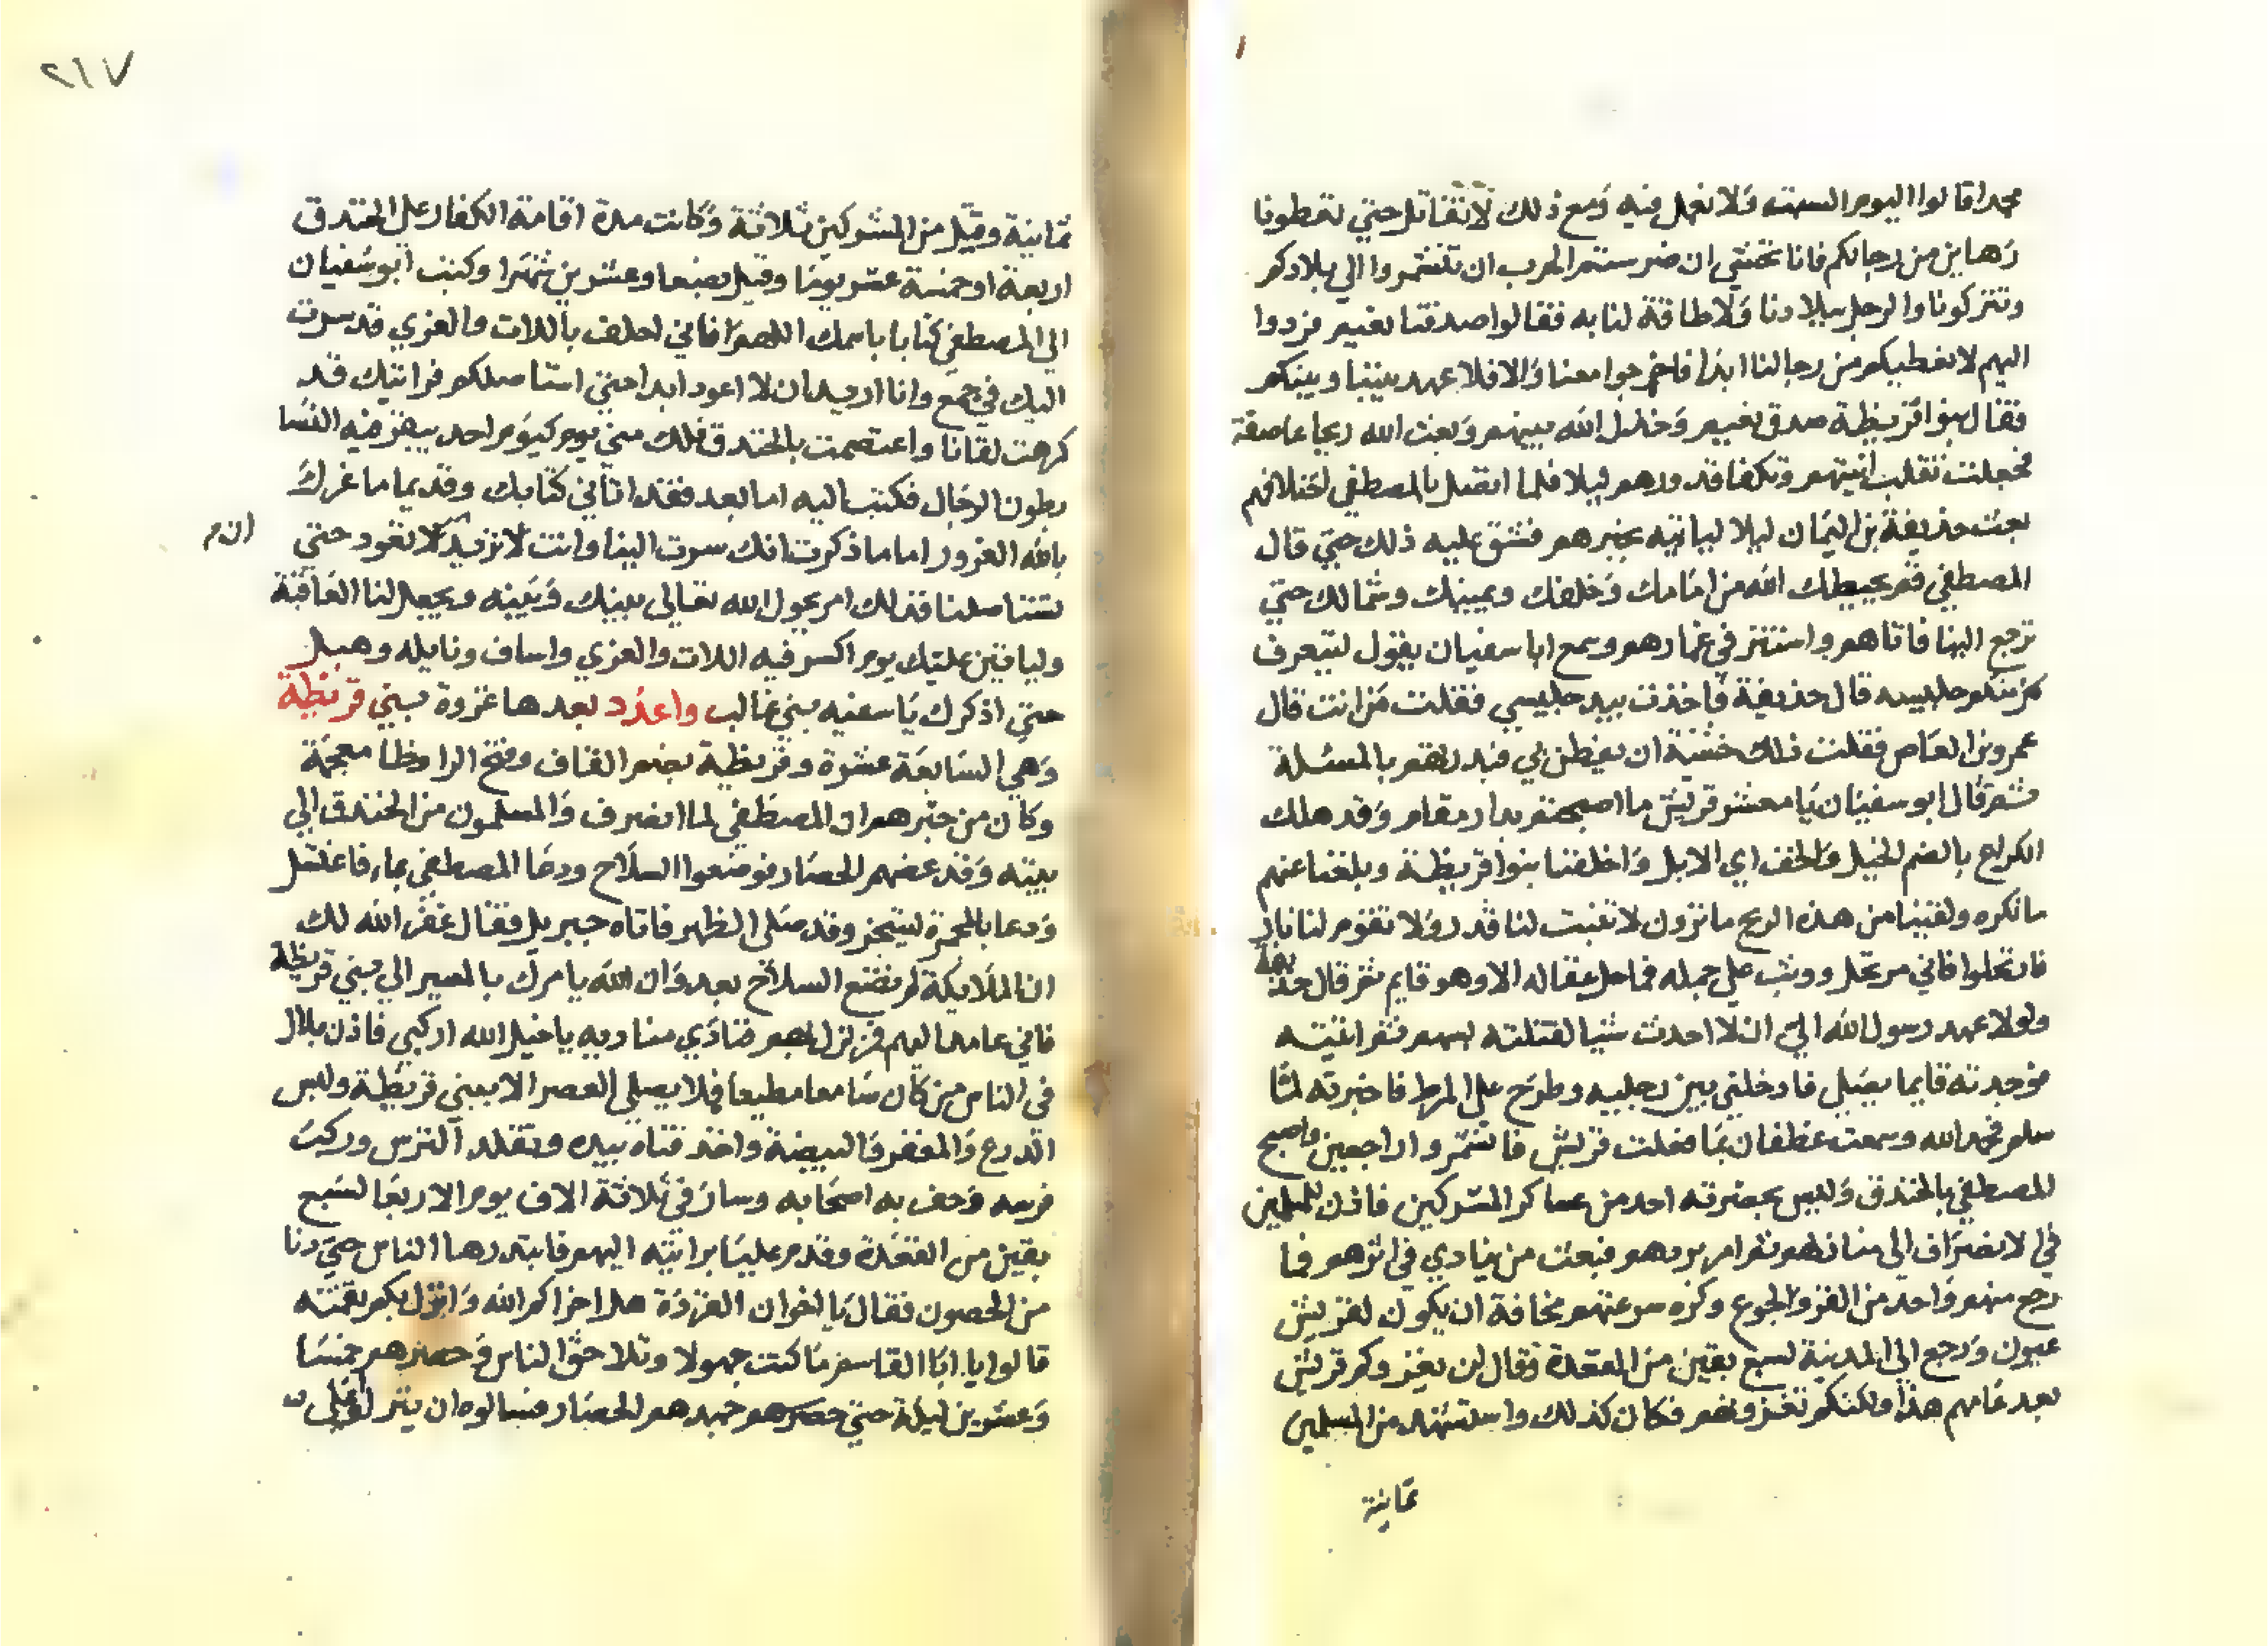 محمدا قالوا اليوم السبت ولا نعمل فيه ومع ذلك لا نقاتل حتى تعطونا
رهاين من رجالكم فانا نخشى ان ضرستم الحرب ان تنشمروا الى بلادكم
وتتركونا والرجل ببلادنا ولا طاقة لنا به فقالوا صدقنا نعيم فردوا
اليهم لا نعطيكم من رجالنا ابدا فاخرجوا معنا والا فلا عهد بيننا وبينكم
فقال بنوا قريظة صدق نعيم وخذل الله بينهم وبعث الله ريحا عاصفة
فجعلت تقلب انيتهم وتكفا قدورهم ليلا فلما اتصل بالمصطفى اختلافهم
بعث حذيفة بن اليمان ليلا لياتيه بخبرهم فشق عليه ذلك حتى قال
المصطفى قم يحيطك الله من امامك وخلفك ويمينك وشمالك حتى
ترجع الينا فاتاهم واستتر في غمارهم وسمع ابا سفيان يقول ليتعرف
كل منكم جليسه قال حذيفة فاخذت بيد جليسي فقلت من انت قال
عمرو بن العاص فقلت ذلك خشية ان يفطن بي فبدرتهم بالمسئلة
ثم قال ابو سفيان يا معشر قريش ما اصبحتم بدار مقام وقد هلك
الكراع بالضم الخيل والخف اي الابل واخلفتنا بنوا قريظة وبلغنا عنهم
ما نكره ولقينا من هذه الريح ما ترون لا تثبت لنا قدر ولا تقوم لنا نار
فارتحلوا فاني مرتحل ووثب على جمله فما حل عقاله الا وهو قايم ثم قال حذيفة
ولولا عهد رسول الله الي ان لا احدث شيا لقتلته بسهم ثم اتيته
فوجدته قايما يصلي فادخلني بين رجليه وطرح علي المرط فاخبرته لما
سلم فحمد الله وسمعت غطفان بما فعلت قريش فانشمروا راجعين واصبح
المصطفى بالخندق وليس بحضرته احد من عساكر المشركين فاذن للمسلمين
في الانصراف الى منازلهم ثم امر بردهم فبعث من ينادي في اثرهم فما
رجع منهم واحد من القر والجوع وكره سرعتهم مخافة ان يكون لقريش
عيون ورجع الى المدينة لسبع بقين من القعدة وقال لن يغزوكم قريش
بعد عامهم هذا ولكنكم تغزونهم فكان كذلك واستشهد من المسلمين
ثمانية
٢١٧
ثمانية وقتل من المشركين ثلاثة وكانت مدة اقامة الكفار على الخندق
اربعة او خمسة عشر يوما وقيل بضعا وعشرين شهرا وكتب ابو سفيان
الى المصطفى كتابا باسمك اللهم فاني احلف باللات والعزى قد سرت
اليك في جمع وانا اريد ان لا اعود ابدا حتى استاصلكم فرايتك قد
كرهت لقانا واعتصمت بالخندق فلك مني يوم كيوم احد يبقر فيه النسا
بطون الرجال فكتب اليه اما بعد فقد اتاني كتابك وقديما ما غرك
بالله الغرور اما ما ذكرت انك سرت الينا وانت لا تريد لا تعود حتى
ان م
تستاصلنا فذلك امر يحول الله تعالى بينك وبينه ويجعل لنا العاقبة
ولياتين عليك يوم اكسر فيه اللات والعزى واساف ونايله وهبل
حتى اذكرك يا سفيه بني غالب واعدد بعدها غزوة بني قريظة
وهي السابعة عشرة وقريظة بضم القاف وفتح الرا وظا معجمة
وكان من خبرهم ان المصطفى لما انصرف والمسلمون من الخندق الى
بيته وقد عضهم الحصار فوضعوا السلاح ودخا المصطفى بماء فاغتسل
ودعا بالمجمرة ليتبخر وقد صلى الظهر فاتاه جبريل فقال غفر الله لك
ان الملايكة لم تضع السلاح بعد وان الله يامرك بالمسير الى بني قريظة
فاني عامد اليهم فزلزل بهم فنادي مناديه يا خيل الله اركبي فاذن بلال
في الناس من كان سامعا مطيعا فلا يصلي العصر الا ببني قريظة ولبس
الدرع والمغفر والبيضة واخذ قناه بيده وتقلد الترس وركب
فرسه وحف به اصحابه وسار في ثلاثة الاف يوم الاربعا لسبع
بقين من القعدة وقدم عليا برايته اليهم فابتدرها الناس حتى دنا
من الحصون فقال يا اخوان القردة هل اخزاكم الله وانزل بكم نقمته
قالوا يا ابا القاسم ما كنت جهولا وتلاحق الناس وحصرهم خمسا
وعشرين ليلة حتى حصرهم جهدهم الحصار فسالوه ان ينزلوا على